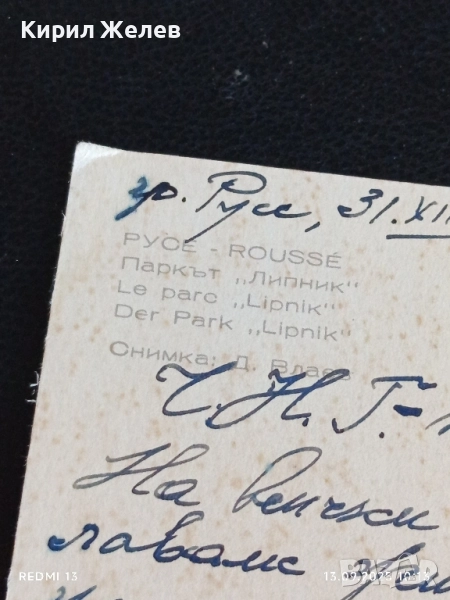 Кирил Желев
гр. Русе, 31.XII
РУСЕ - ROUSSÉ
Паркът „Липник“
Le parc „Lipnik“
Der Park „Lipnik“
Снимка: Д. Власев
Ч.Н.Г.-
На всички
REDMI 13
13.09.2025 10:13